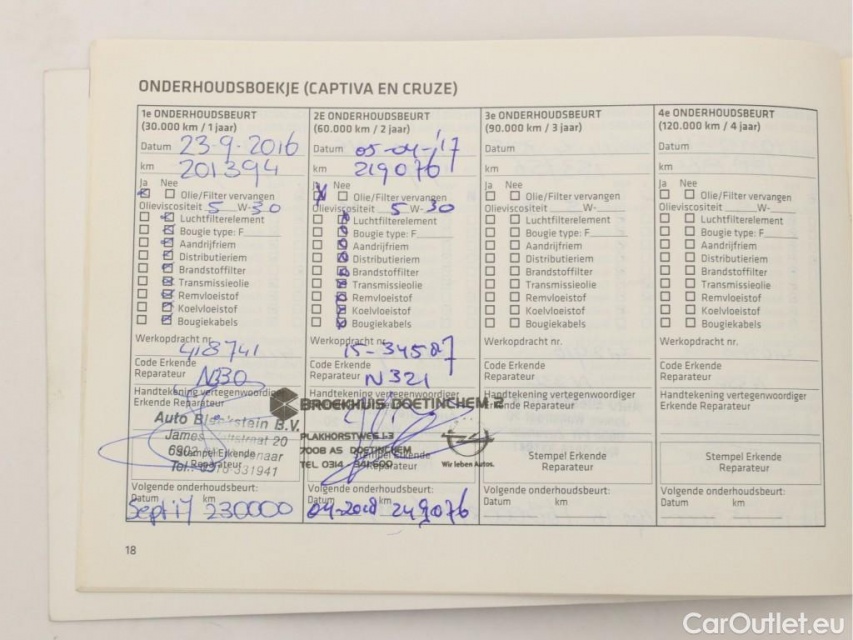 ONDERHOUDSBOEKJE (CAPTIVA EN CRUZE)
1e ONDERHOUDSBEURT
(30.000 km / 1 jaar)
Datum 23-9-2016
km 201394
Ja Nee
Olie/Filter vervangen
Olieviscositeit 5 W-30
Luchtfilterelement
Bougie type: F
Aandrijfriem
Distributieriem
Brandstoffilter
Transmissieolie
Remvloeistof
Koelvloeistof
Bougiekabels
Werkopdracht nr.
418741
Code Erkende
Reparateur N330
Handtekening vertegenwoordiger
Erkende Reparateur
Auto B.V.
James 20
Stempel Erkende
Reparateur
Tel.: 331941
Volgende onderhoudsbeurt:
Datum km
Sept 17 230000
2E ONDERHOUDSBEURT
(60.000 km / 2 jaar)
Datum 05-04-'17
km 219076
Ja Nee
Olie/Filter vervangen
Olieviscositeit 5 W-30
Luchtfilterelement
Bougie type: F
Aandrijfriem
Distributieriem
Brandstoffilter
Transmissieolie
Remvloeistof
Koelvloeistof
Bougiekabels
Werkopdracht nr.
15-34587
Code Erkende
Reparateur N321
Handtekening vertegenwoordiger
Erkende Reparateur
BROEKHUIS DOETINCHEM 2
PLAKHORSTWEG 1-3
7008 AS DOETINCHEM
TEL 0314
Stempel Erkende
Reparateur
Wir leben Autos.
Volgende onderhoudsbeurt:
Datum km
04-2018 249076
3e ONDERHOUDSBEURT
(90.000 km / 3 jaar)
Datum
km
Ja Nee
Olie/Filter vervangen
Olieviscositeit W-
Luchtfilterelement
Bougie type: F
Aandrijfriem
Distributieriem
Brandstoffilter
Transmissieolie
Remvloeistof
Koelvloeistof
Bougiekabels
Werkopdracht nr.
Code Erkende
Reparateur
Handtekening vertegenwoordiger
Erkende Reparateur
Stempel Erkende
Reparateur
Volgende onderhoudsbeurt:
Datum km
4e ONDERHOUDSBEURT
(120.000 km / 4 jaar)
Datum
km
Ja Nee
Olie/Filter vervangen
Olieviscositeit W-
Luchtfilterelement
Bougie type: F
Aandrijfriem
Distributieriem
Brandstoffilter
Transmissieolie
Remvloeistof
Koelvloeistof
Bougiekabels
Werkopdracht nr.
Code Erkende
Reparateur
Handtekening vertegenwoordiger
Erkende Reparateur
Stempel Erkende
Reparateur
Volgende onderhoudsbeurt:
Datum km
18
CarOutlet.eu